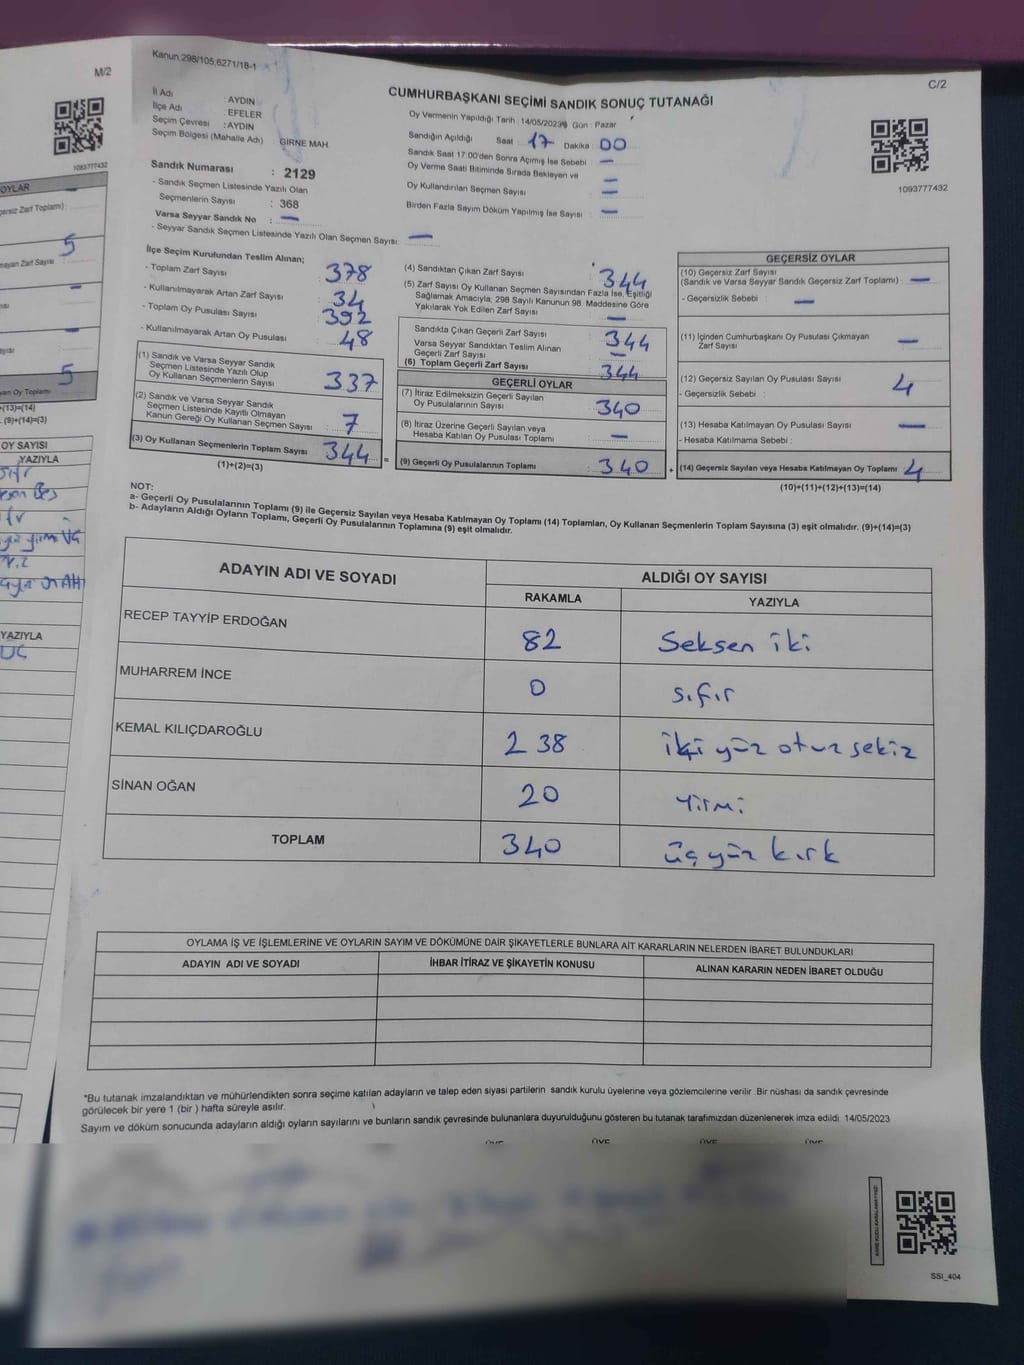 M/2
1093777432
OYLAR
5
5
+(13)=(14)
(9)+(14)=(3)
OY SAYISI
YAZIYLA
YAZIYLA
Kanun.298/105,6271/18-1
C/2
CUMHURBAŞKANI SEÇİMİ SANDIK SONUÇ TUTANAĞI
İl Adı : AYDIN
İlçe Adı : EFELER
Seçim Çevresi : AYDIN
Seçim Bölgesi (Mahalle Adı) GİRNE MAH.
Oy Vermenin Yapıldığı Tarih : 14/05/2023 Gün : Pazar
Sandığın Açıldığı Saat 17 Dakika 00
Sandık Saat 17:00'den Sonra Açılmış İse Sebebi : —
Oy Verme Saati Bitiminde Sırada Bekleyen ve
Oy Kullandırılan Seçmen Sayısı : —
Birden Fazla Sayım Döküm Yapılmış İse Sayısı : —
1093777432
Sandık Numarası : 2129
- Sandık Seçmen Listesinde Yazılı Olan
Seçmenlerin Sayısı : 368
Varsa Seyyar Sandık No : —
- Seyyar Sandık Seçmen Listesinde Yazılı Olan Seçmen Sayısı: —
İlçe Seçim Kurulundan Teslim Alınan;
- Toplam Zarf Sayısı : 378
- Kullanılmayarak Artan Zarf Sayısı : 34
- Toplam Oy Pusulası Sayısı : 392
- Kullanılmayarak Artan Oy Pusulası : 48
(1) Sandık ve Varsa Seyyar Sandık
Seçmen Listesinde Yazılı Olup
Oy Kullanan Seçmenlerin Sayısı : 337
(2) Sandık ve Varsa Seyyar Sandık
Seçmen Listesinde Kayıtlı Olmayan
Kanun Gereği Oy Kullanan Seçmen Sayısı : 7
(3) Oy Kullanan Seçmenlerin Toplam Sayısı : 344 =
(1)+(2)=(3)
(4) Sandıktan Çıkan Zarf Sayısı : 344
(5) Zarf Sayısı Oy Kullanan Seçmen Sayısından Fazla İse, Eşitliği
Sağlamak Amacıyla, 298 Sayılı Kanunun 98. Maddesine Göre
Yakılarak Yok Edilen Zarf Sayısı : —
Sandıkta Çıkan Geçerli Zarf Sayısı : 344
Varsa Seyyar Sandıktan Teslim Alınan
Geçerli Zarf Sayısı : —
(6) Toplam Geçerli Zarf Sayısı : 344
GEÇERLİ OYLAR
(7) İtiraz Edilmeksizin Geçerli Sayılan
Oy Pusulalarının Sayısı : 340
(8) İtiraz Üzerine Geçerli Sayılan veya
Hesaba Katılan Oy Pusulası Toplamı : —
(9) Geçerli Oy Pusulalarının Toplamı : 340 +
GEÇERSİZ OYLAR
(10) Geçersiz Zarf Sayısı
(Sandık ve Varsa Seyyar Sandık Geçersiz Zarf Toplamı) : —
- Geçersizlik Sebebi : —
(11) İçinden Cumhurbaşkanı Oy Pusulası Çıkmayan
Zarf Sayısı : —
(12) Geçersiz Sayılan Oy Pusulası Sayısı : 4
- Geçersizlik Sebebi :
(13) Hesaba Katılmayan Oy Pusulası Sayısı : —
- Hesaba Katılmama Sebebi :
(14) Geçersiz Sayılan veya Hesaba Katılmayan Oy Toplamı : 4
(10)+(11)+(12)+(13)=(14)
NOT:
a- Geçerli Oy Pusulalarının Toplamı (9) ile Geçersiz Sayılan veya Hesaba Katılmayan Oy Toplamı (14) Toplamları, Oy Kullanan Seçmenlerin Toplam Sayısına (3) eşit olmalıdır. (9)+(14)=(3)
b- Adayların Aldığı Oyların Toplamı, Geçerli Oy Pusulalarının Toplamına (9) eşit olmalıdır.
ADAYIN ADI VE SOYADI ALDIĞI OY SAYISI
RAKAMLA YAZIYLA
RECEP TAYYİP ERDOĞAN 82 Seksen iki
MUHARREM İNCE 0 sıfır
KEMAL KILIÇDAROĞLU 238 iki yüz otuz sekiz
SİNAN OĞAN 20 Yirmi
TOPLAM 340 üç yüz kırk
OYLAMA İŞ VE İŞLEMLERİNE VE OYLARIN SAYIM VE DÖKÜMÜNE DAİR ŞİKAYETLERLE BUNLARA AİT KARARLARIN NELERDEN İBARET BULUNDUKLARI
ADAYIN ADI VE SOYADI İHBAR İTİRAZ VE ŞİKAYETİN KONUSU ALINAN KARARIN NEDEN İBARET OLDUĞU
*Bu tutanak imzalandıktan ve mühürlendikten sonra seçime katılan adayların ve talep eden siyasi partilerin sandık kurulu üyelerine veya gözlemcilerine verilir. Bir nüshası da sandık çevresinde
görülecek bir yere 1 (bir ) hafta süreyle asılır.
Sayım ve döküm sonucunda adayların aldığı oyların sayılarını ve bunların sandık çevresinde bulunanlara duyurulduğunu gösteren bu tutanak tarafımızdan düzenlenerek imza edildi. 14/05/2023
ÜYE ÜYE ÜYE ÜYE
SSI_404